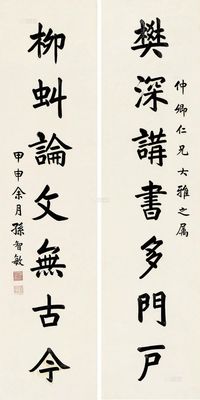 仲卿仁兄大雅之属
樊深講書多門戸
柳虯論文無古今
甲申余月孫智敏